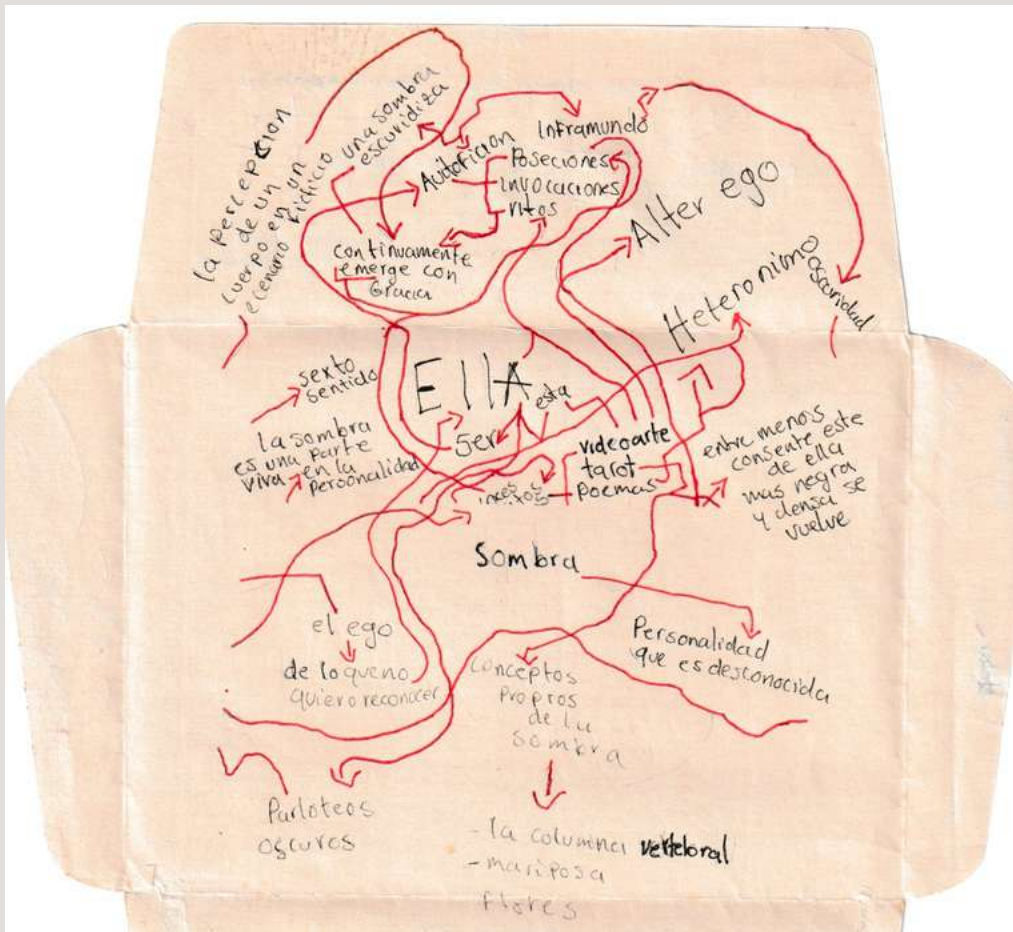 la percepcion
de un
cuerpo en un
ecenario ficticio
una sombra
escuridiza
Autoficion
Inframundo
Poseciones
invocaciones
ritos
continuamente
emerge con
Gracia
Alter ego
Heteronimo
oscuridad
sexto
sentido
EllA
esta
Ser
la sombra
es una parte
viva en la
Personalidad
videoarte
tarot
Poemas
entre menos
consente este
de ella
mas negra
y densa se
vuelve
Sombra
el ego
de lo que no
quiero reconocer
Personalidad
que es desconocida
conceptos
propros
de la
sombra
Parloteos
oscuros
- la columna vertebral
- mariposa
flores